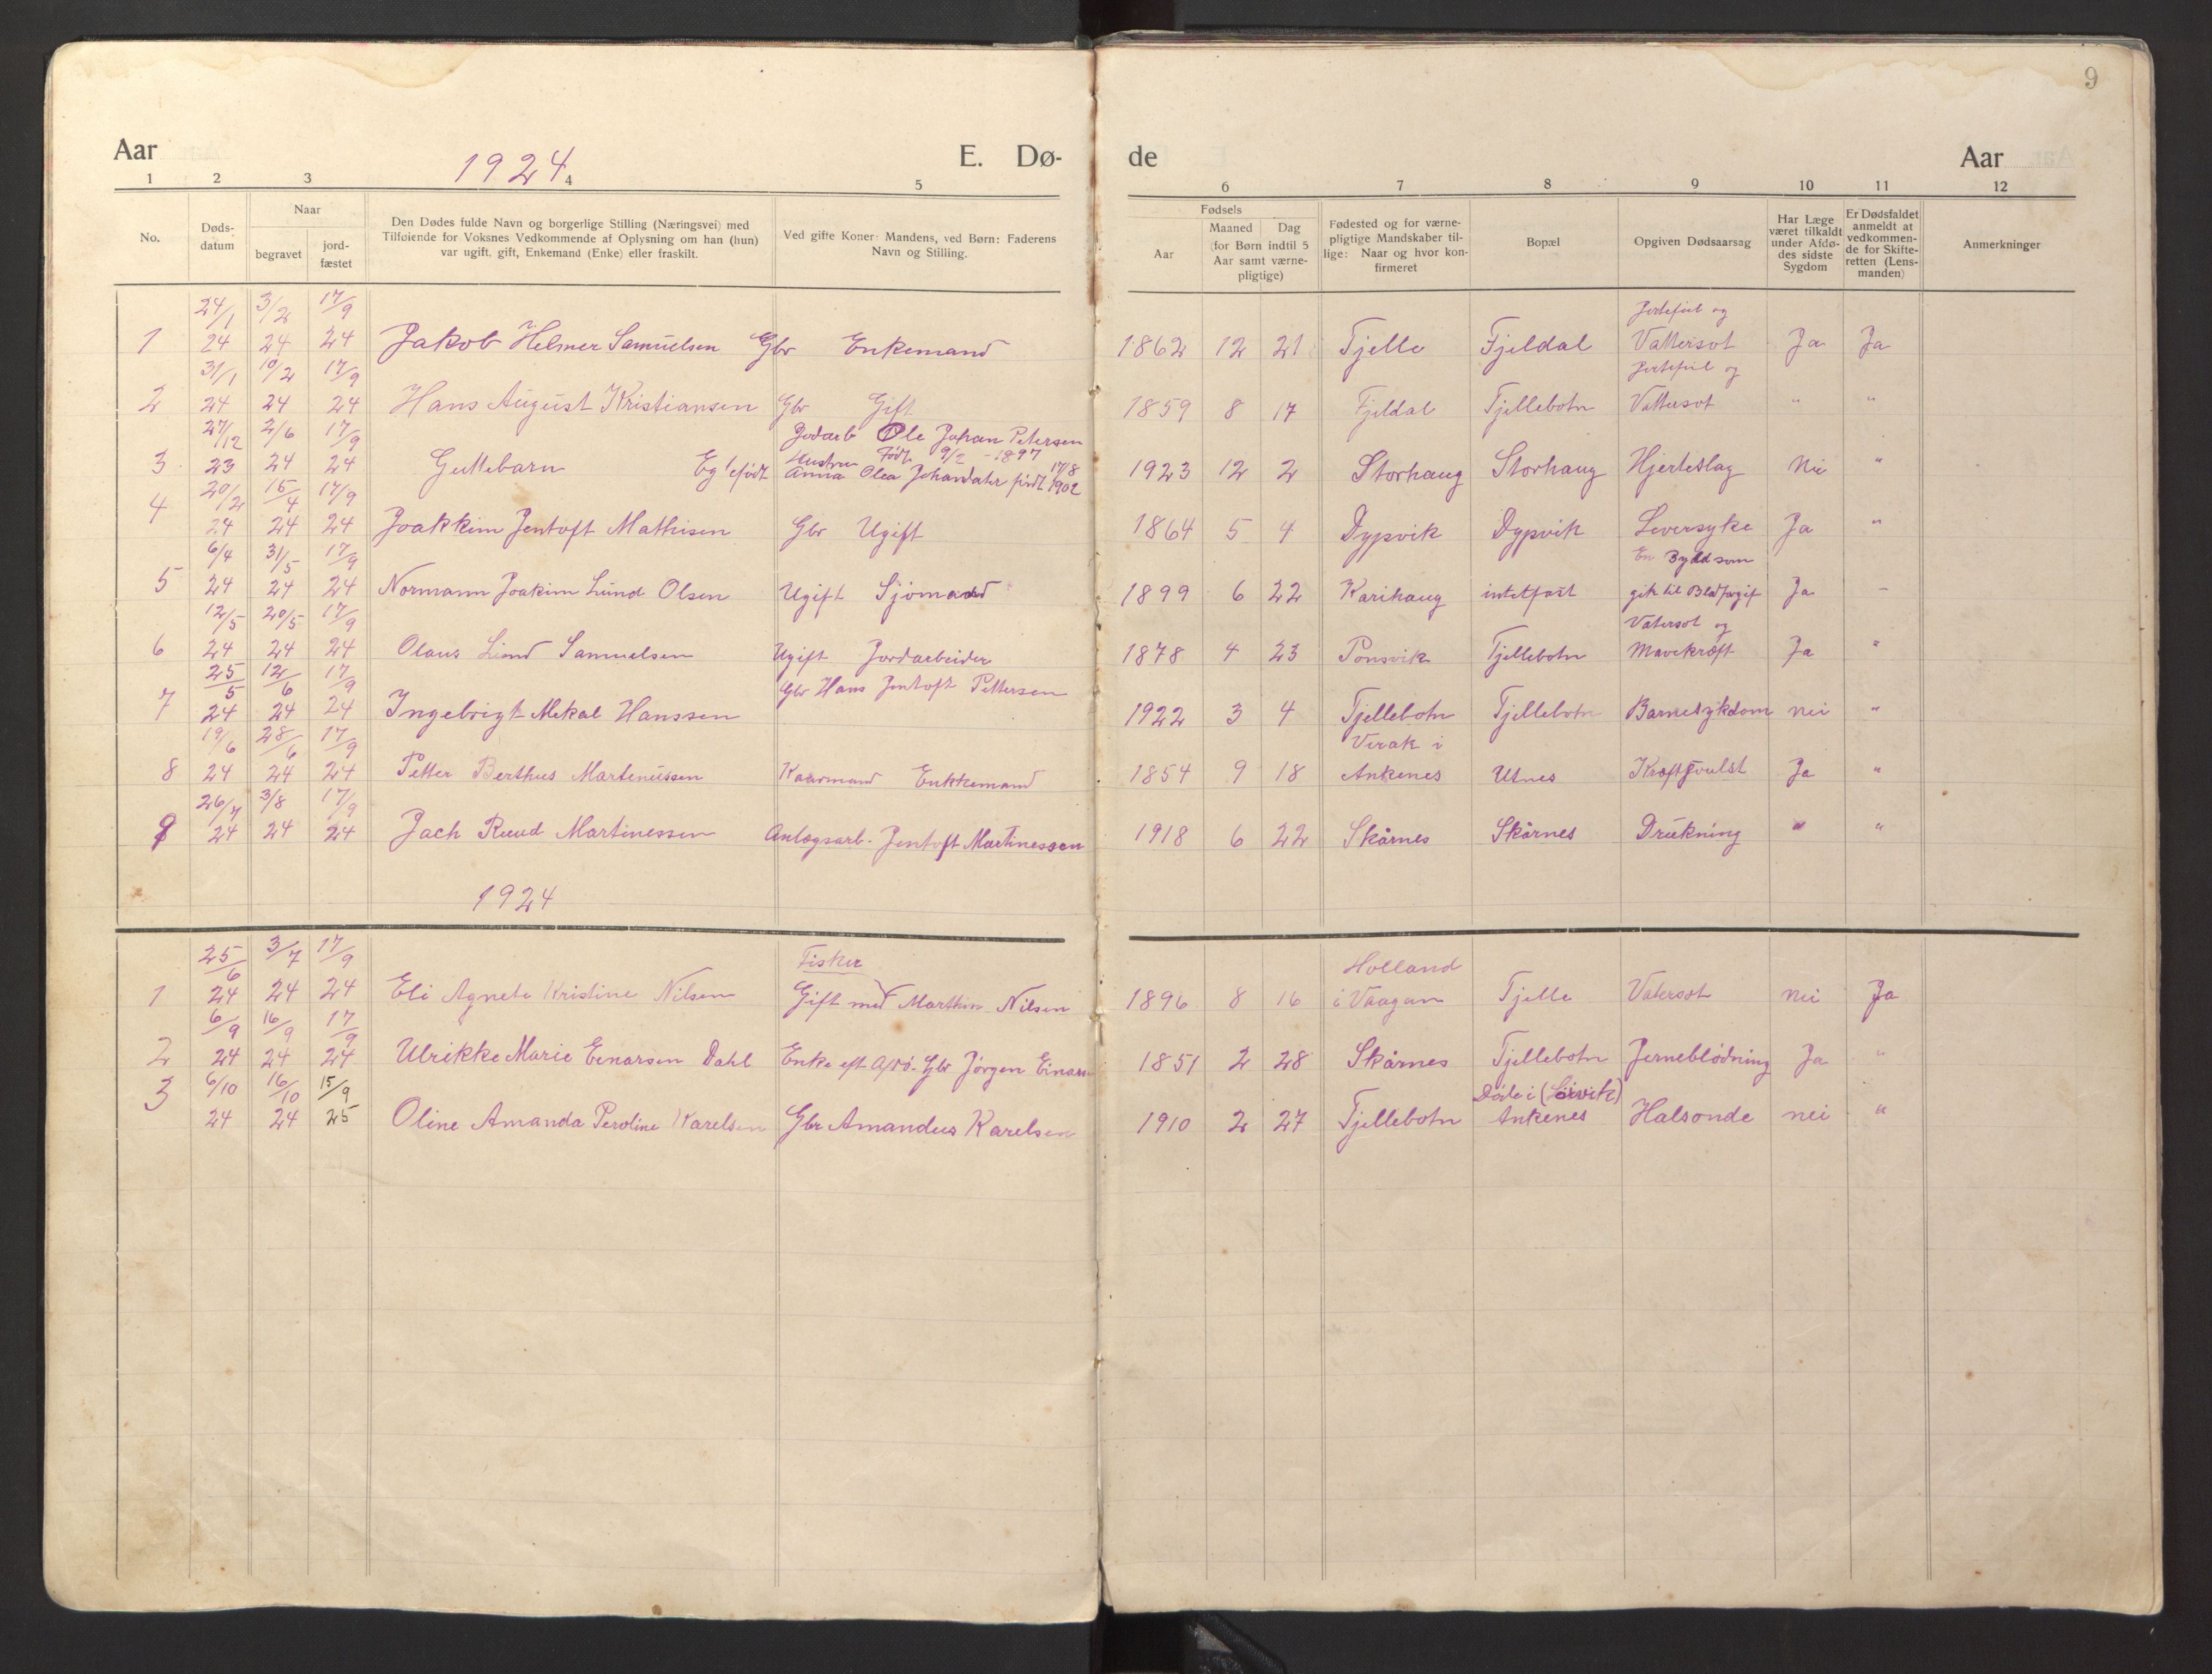 9
Aar 1924 E. Dø- de Aar
1 2 3 4 5 6 7 8 9 10 11 12
No.
Døds-
datum
Naar
begravet
jord-
fæstet
Den Dødes fulde Navn og borgerlige Stilling (Næringsvei) med
Tilføiende for Voksnes Vedkommende af Oplysning om han (hun)
var ugift, gift, Enkemand (Enke) eller fraskilt.
Ved gifte Koner: Mandens, ved Børn: Faderens
Navn og Stilling.
Fødsels
Aar
Maaned Dag
(for Børn indtil 5
Aar samt værne-
pligtige)
Fødested og for værne-
pligtige Mandskaber til-
lige: Naar og hvor kon-
firmeret
Bopæl
Opgiven Dødsaarsag
Har Læge
været tilkaldt
under Afdø-
des sidste
Sygdom
Er Dødsfaldet
anmeldt at
vedkommen-
de for Skifte-
retten (Lens-
manden)
Anmerkninger
24/1 3/2 17/9
1 24 24 24 Jakob Helmer Samuelsen Gbr Enkemand 1862 12 21 Tjelle Fjeldal Vattersot Ja Ja
31/1 10/2 17/9
2 24 24 24 Hans August Kristiansen Gbr Gift 1859 8 17 Fjeldal Tjellebotn Vattersot " "
27/12 2/6 17/9 Jodarb Ole Johan Petersen
Hustru Født 9/2 - 1897
3 23 24 24 Guttebarn Egtefødt Anna Olea Johandatr født 17/8 1902 1923 12 2 Storhaug Storhaug Hjerteslag Nei "
20/2 15/4 17/9
4 24 24 24 Joakkim Jentoft Mathisen Gbr Ugift 1864 5 4 Dypvik Dypvik Leversyke Ja "
6/4 31/5 17/9 En Bydd som
5 24 24 24 Normann Joakim Lund Olsen Ugift Sjömand 1899 6 22 Karihaug intetfast gik til Blodforgif Ja -
12/5 20/5 17/9 Vatersot og
6 24 24 24 Olaus Lind Samuelsen Ugift Jordarbeider 1878 4 23 Ponsvik Tjellebotn Mavekræft Ja "
25/5 12/6 17/9 Gbr Hans Jentoft Pettersen
7 24 24 24 Ingebrigt Mekal Hanssen 1922 3 4 Tjellebotn Tjellebotn Barnesykdom nei "
19/6 28/6 17/9 Virak i
8 24 24 24 Petter Berthus Martenussen Kaarmand Enkkemand 1854 9 18 Ankenes Utnes Kræftsvulst Ja "
26/7 3/8 17/9
9 24 24 24 Jach Ruud Martinessen Anlægsarb. Jentoft Martinessen 1918 6 22 Skårnes Skårnes Drukning " "
1924
25/6 3/7 17/9 Fisker Holland
1 24 24 24 Eli Agnete Kristine Nilsen Gift med Marthin Nilsen 1896 8 16 i Vaagan Tjelle Vatersot nei Ja
6/9 16/9 17/9
2 24 24 24 Ulrikke Marie Einarsen Dahl Enke eft Afdö. Gbr Jörgen Einars 1851 2 28 Skårnes Tjellebotn Jerneblödning Ja "
6/10 16/10 15/9
3 24 24 25 Oline Amanda Peroline Karelsen Gbr Amandus Karelsen 1910 2 27 Tjellebotn Ankenes Halsonde nei "